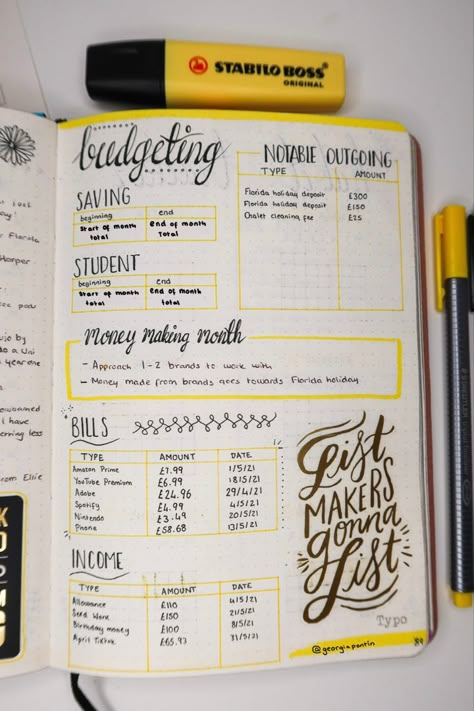 STABILO BOSS
ORIGINAL
budgeting
SAVING
beginning end
Start of month total End of month Total
STUDENT
beginning end
Start of month total End of month total
NOTABLE OUTGOING
TYPE AMOUNT
Florida holiday deposit £300
Florida holiday deposit £150
Chalet cleaning fee £25
Money Making Month
- Approach 1-2 brands to work with
- Money made from brands goes towards Florida holiday
BILLS
TYPE AMOUNT DATE
Amazon Prime £7.99 1/5/21
YouTube Premium £6.99 18/5/21
Adobe £24.96 29/4/21
Spotify £4.99 4/5/21
Nintendo £3.49 20/5/21
Phone £58.68 13/5/21
INCOME
TYPE AMOUNT DATE
Allowance £110 4/5/21
Seed Work £150 21/5/21
Birthday money £100 8/5/21
April TikTok £65.93 31/5/21
List
MAKERS
gonna
List
Typo
@georgiapontin
89
Florida
Harper
a Uni
I have
from Ellie